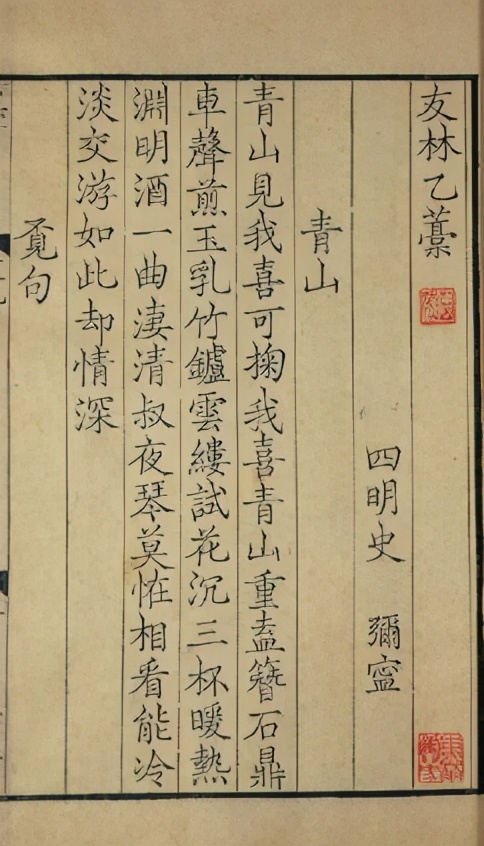 友林乙藁
四明史 彌寧
青山
青山見我喜可掬我喜青山重盍簪石鼎
車聲煎玉乳竹鑪雲縷試花沉三杯暖熱
淵明酒一曲淒清叔夜琴莫恠相看能冷
淡交游如此却情深
覓句